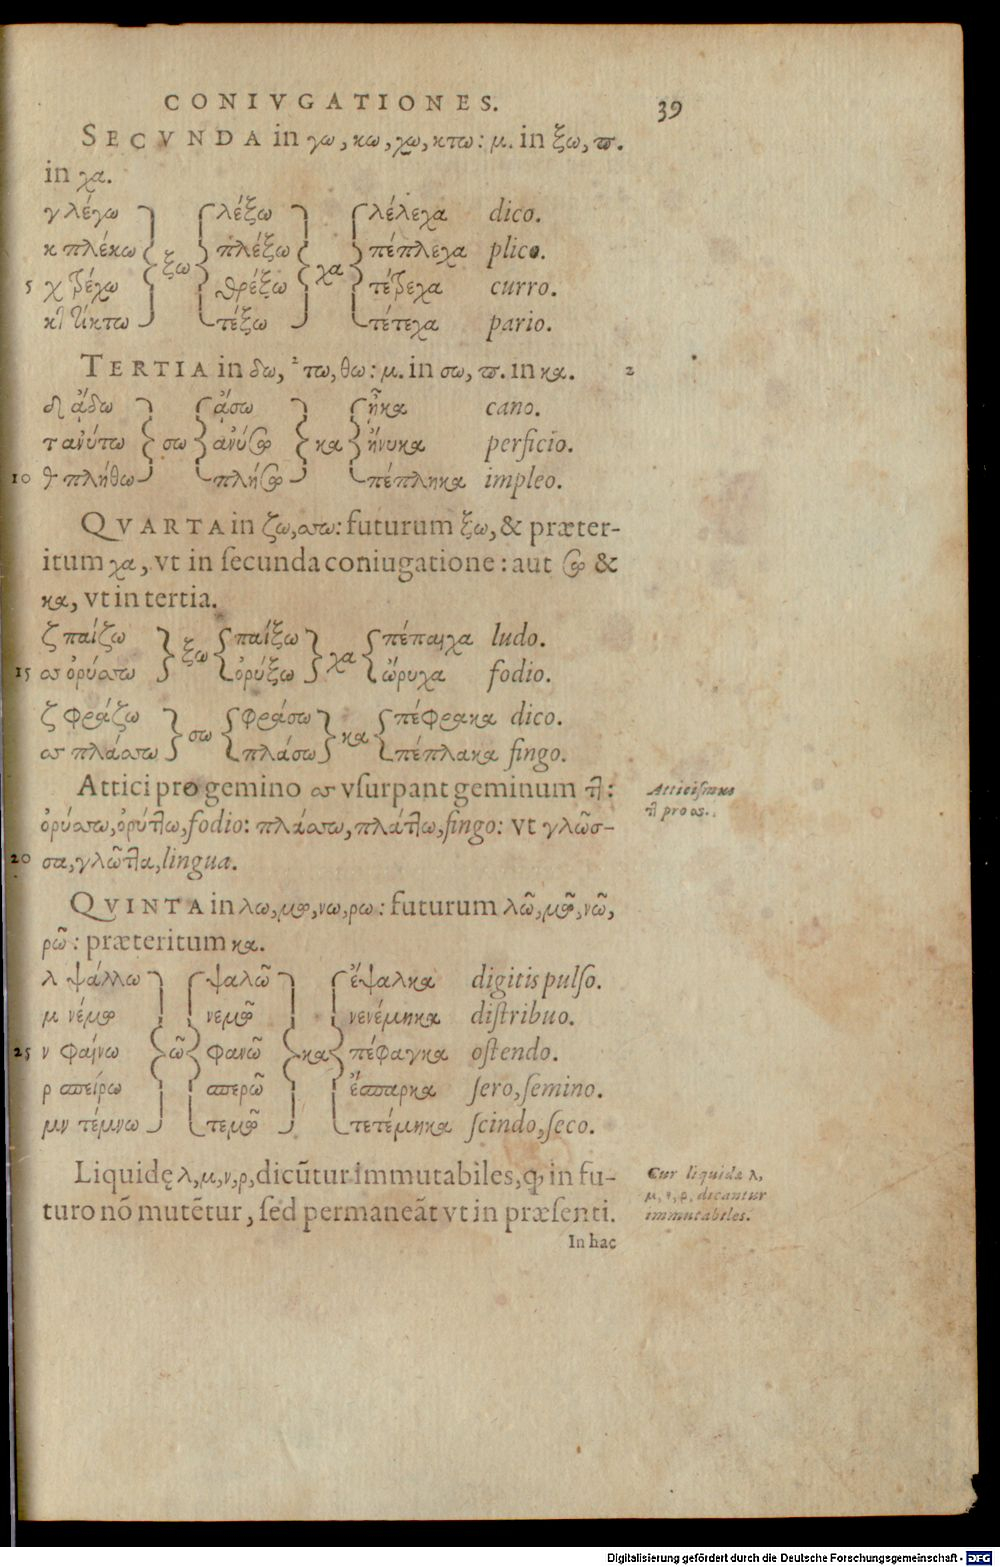 CONIVGATIONES. 39
SECVNDA in γω, κω, χω, κτω: μ. in ξω, ϖ.
in χα.
γ λέγω λέξω λέλεχα dico.
κ πλέκω ξω πλέξω χα πέπλεχα plico.
5 χ τρέχω θρέξω τέτρεχα curro.
κτ τίκτω τέξω τέτεχα pario.
TERTIA in δω, ² τω, θω: μ. in σω, ϖ. in κα. 2
δ ᾄδω ᾄσω ᾖκα cano.
τ ἀνύτω σω ἀνύσω κα ἤνυκα perficio.
10 θ πλήθω πλήσω πέπληκα impleo.
QVARTA in ζω, σσω: futurum ξω, & præter-
itum χα, vt in ſecunda coniugatione: aut σω &
κα, vt in tertia.
ζ παίζω ξω παίξω χα πέπαιχα ludo.
15 σσ ὀρύσσω ὀρύξω ὤρυχα fodio.
ζ φράζω σω φράσω κα πέφρακα dico.
σσ πλάσσω πλάσω πέπλακα fingo.
Attici pro gemino σσ vſurpant geminum ττ: Atticiſmus
ὀρύσσω, ὀρύττω, fodio: πλάσσω, πλάττω, fingo: vt γλῶσ- ττ pro σσ.
20 σα, γλῶττα, lingua.
QVINTA in λω, μω, νω, ρω: futurum λῶ, μῶ, νῶ,
ρῶ: præteritum κα.
λ ψάλλω ψαλῶ ἔψαλκα digitis pulſo.
μ νέμω νεμῶ νενέμηκα diſtribuo.
25 ν φαίνω ῶ φανῶ κα πέφαγκα oſtendo.
ρ σπείρω σπερῶ ἔσπαρκα ſero, ſemino.
μν τέμνω τεμῶ τετέμηκα ſcindo, ſeco.
Liquidę λ, μ, ν, ρ, dicũtur immutabiles, ꝙ in fu- Cur liquidæ λ,
turo nõ mutẽtur, ſed permaneãt vt in præſenti. μ, ν, ρ, dicantur
immutabiles.
In hac
Digitalisierung gefördert durch die Deutsche Forschungsgemeinschaft - DFG